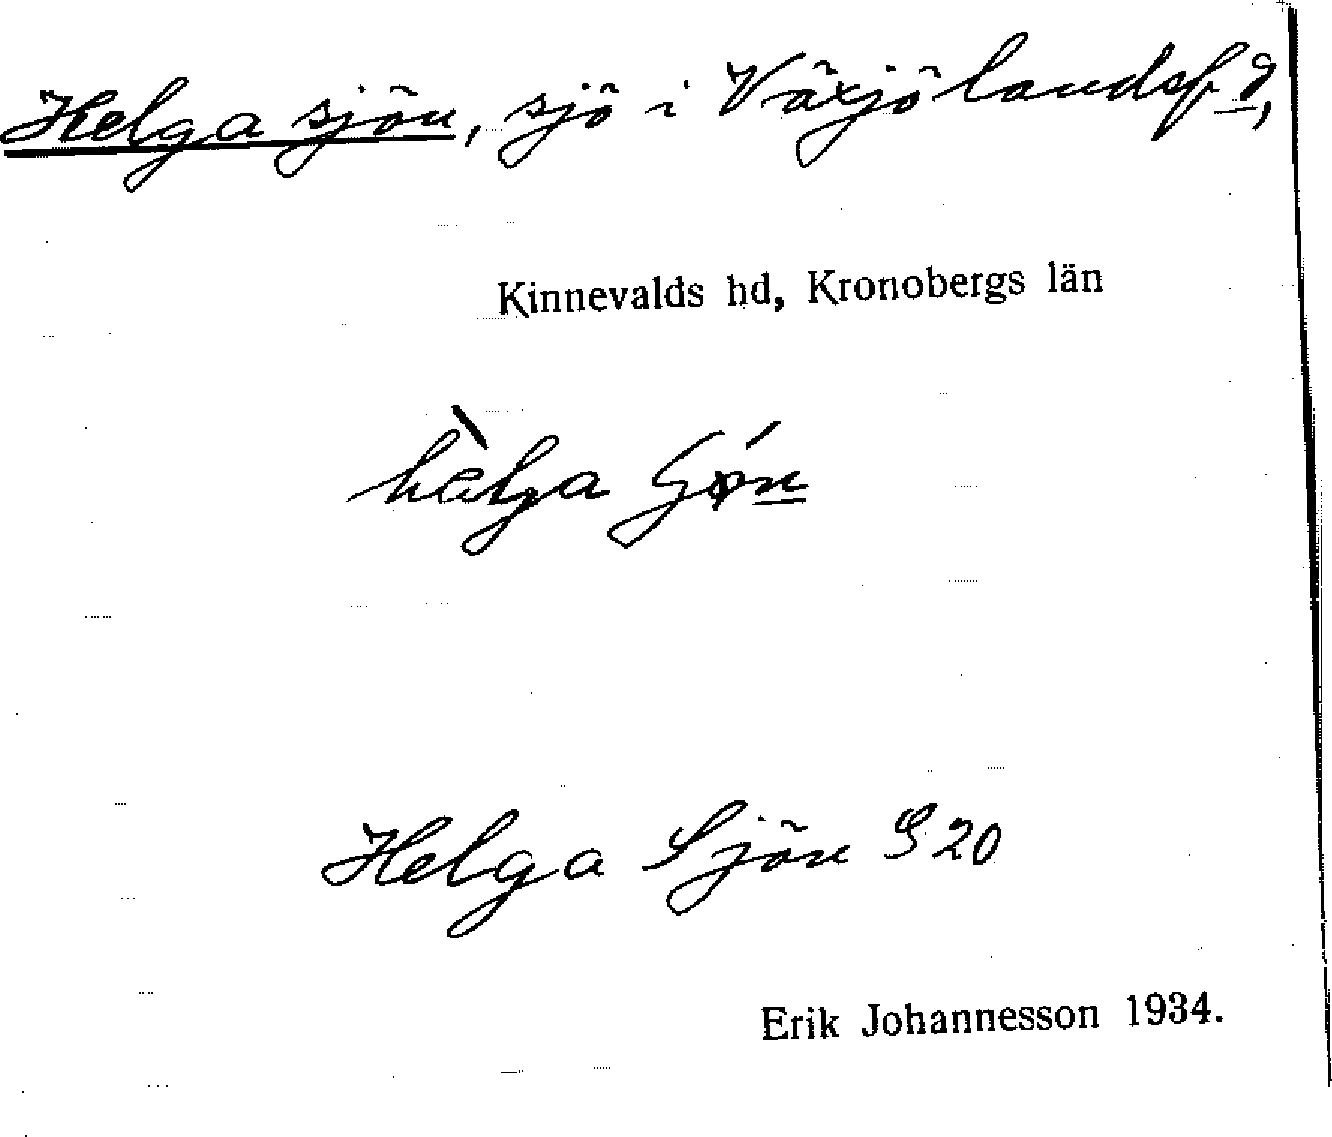 Helga sjön, sjö i Växjö landsf.d,
Kinnevalds hd, Kronobergs län
hèlga
Helga Sjön S 20
Erik Johannesson 1934.